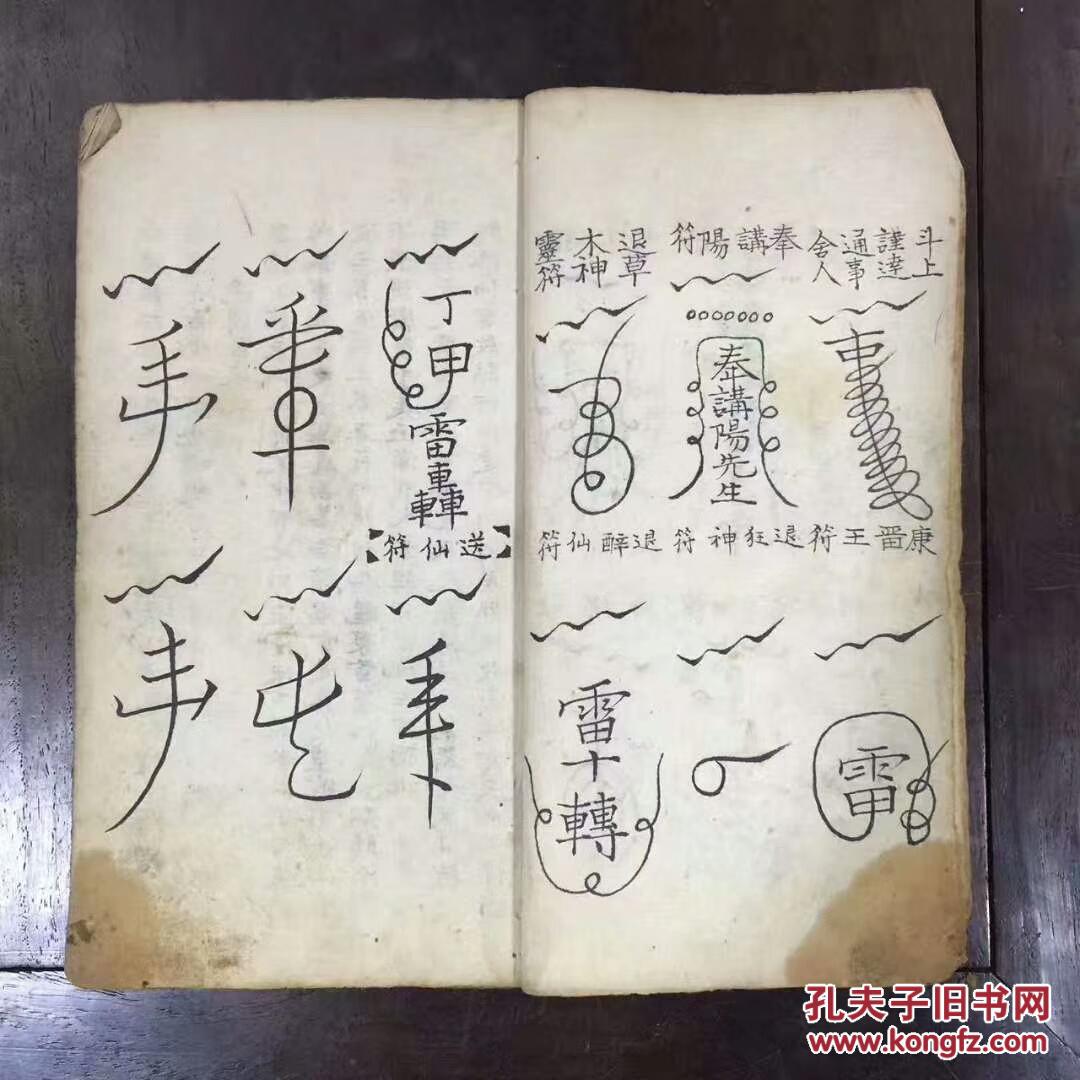 斗上謹達通事舍人
奉講陽符
退草木神靈符
奉講陽先生
康王符
退狂神符
退醉仙符
雷
雷十轉
丁甲雷轟
【送仙符】
孔夫子旧书网
www.kongfz.com